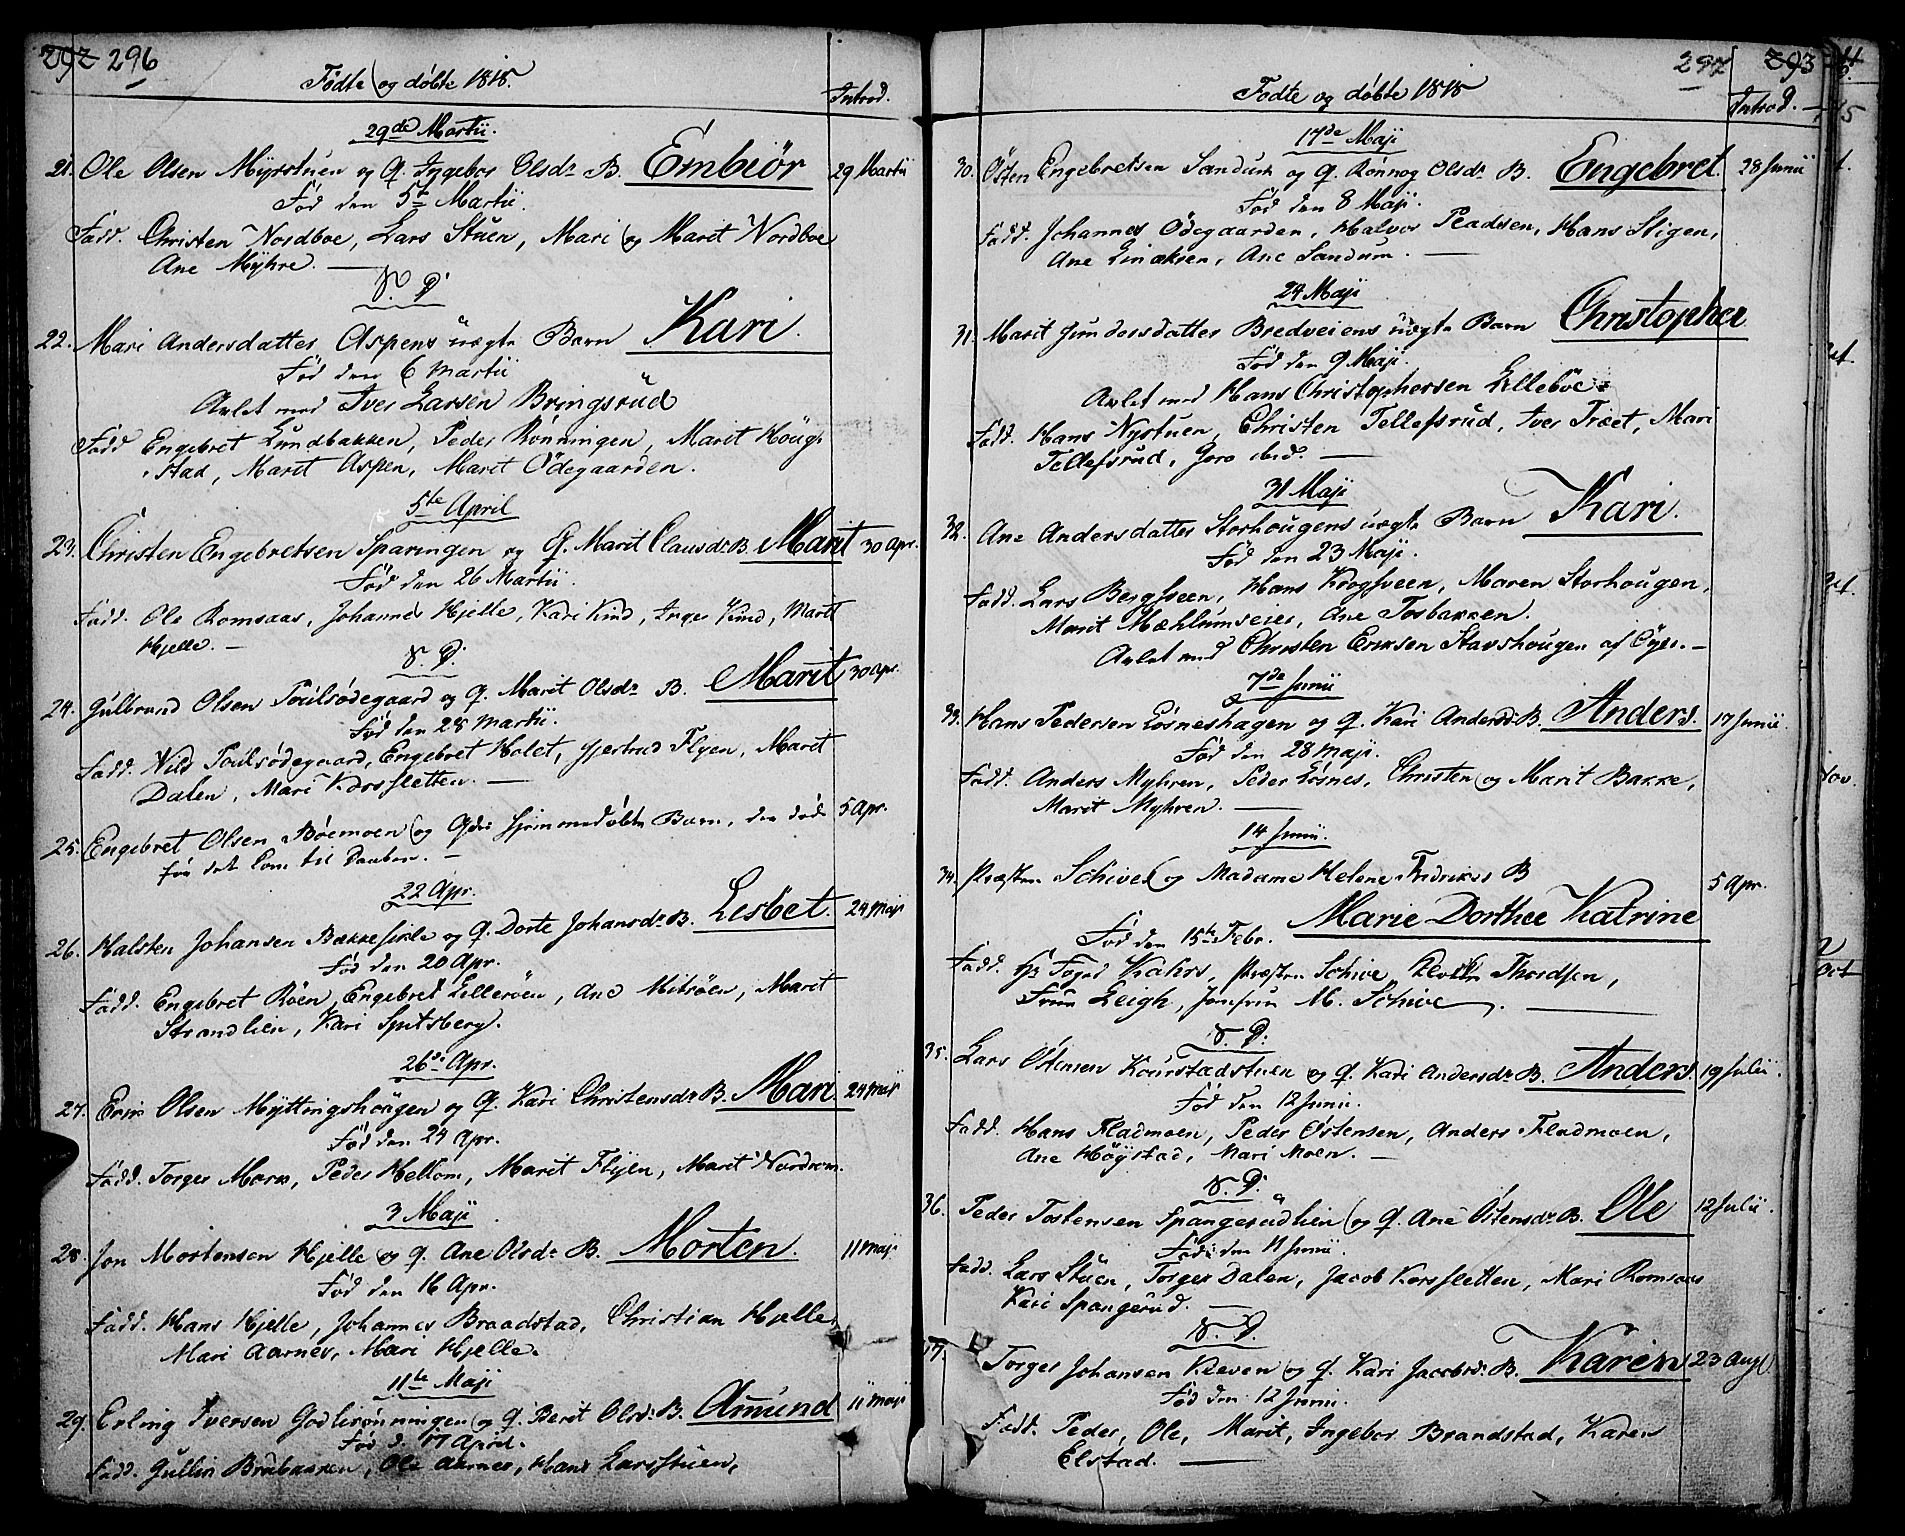 292 296
Fødte og døbte 1818.
Introd.
29de Martii.
21. Ole Olsen Myrstuen og Q. Ingebor Olsdr B. Embiør 29 Martii
Fød den 5te Martii.
Fadd. Christen Nordboe, Lars Stuen, Mari og Marit Nordboe
Ane Myhre.
S. D.
22. Mari Andersdatter Aspens uægte Barn Kari.
Fød den 6 Martii
Avlet med Iver Larsen Bringsrud
Fadd Engebret Lundbakken, Peder Rønningen, Marit Houg-
stad, Marit Aspen, Marit Ødegaarden.
5te April
23. Christen Engebretsen Sparingen og Q. Marit Clausdr B. Marit 30 Apr.
Fød den 26 Martii.
Fadd. Ole Romsaas, Johannes Hjelle, Kari Kind, Inger Kind, Marit
Hjelle.
S. D.
24. Gulbrand Olsen Poulsødegaard og Q. Marit Olsdr B. Marit 30 Apr.
Fød den 28 Martii.
Fadd. Nils Poulsødegaard, Engebret Holet, Gjertrud Flyen, Marit
Dalen, Mari Korssletten.
25. Engebret Olsen Bøemoen og Qdes hjemmedøbte Barn, der døde 5 Apr.
før det kom til Daaben.
22 Apr.
26. Halsten Johansen Bækkesirle og Q. Dorte Johansdr B. Lisbet. 24 Maji
Fød den 20 Apr.
Fadd. Engebret Røen, Engebret Lillerøen, Ane Mitrøen, Marit
Strandlien, Kari Spitsberg.
26de Apr.
27. Erik Olsen Myttingshougen og Q. Kari Christensdr B. Mari 24 Maji
Fød den 24 Apr.
Fadd. Torger Morn, Peder Mellom, Marit Flyen, Marit Nordrom.
3 Maji
28. Jon Mortensen Hjelle og Q. Ane Olsdr B. Morten. 11 Maji
Fød den 16 Apr.
Fadd. Hans Hjelle, Johannes Braadstad, Christian Hjelle,
Mari Aarnes, Mari Hjelle.
11te Maji
29. Erling Iversen Godlirønningen og Q. Berit Olsdr B. Amund 11 Maji
Fød d. 17 April.
Fadd. Gullin Brubakken, Ole Aarnes, Hans Larsstuen,
297 293
Fødte og døbte 1818
Introd.
17de Maji
30. Østen Engebretsen Sandum og Q. Rønnog Olsdr B. Engebret. 28 Junii
Fød den 8 Maji.
Fadd. Johannes Ødegaarden, Halvor Pladsen, Hans Stigen,
Ane Linaksen, Ane Sandum.
24 Maji
31. Marit Gundersdatter Bredveiens uægte Barn Christopher
Fød den 9 Maji.
Avlet med Hans Christophersen Lilleboe
Fadd. Hans Nystuen, Christen Tellefsrud, Iver Træet, Mari
Tellefsrud, Goro ibid.
31 Maji
32. Ane Andersdatter Storhougens uægte Barn Kari.
Fød den 23 Maji.
Fadd. Lars Bergsveen, Hans Krogsveen, Maren Storhougen,
Marit Mæhlumseier, Ane Tosbakken.
Avlet med Christen Eriksen Stavshougen af Øyer.
7de Junii
33. Hans Pedersen Løsneshagen og Q. Kari Andersdr B. Anders. 17 Junii
Fød den 28 Maji.
Fadd. Anders Myhren, Peder Løsnes, Christen og Marit Bakke,
Marit Myhren.
14 Junii.
34. Præsten Schive og Madame Helene Fredrikes B 5 Apr.
Marie Dorthee Katrine
Fød den 15te Febr.
Fadd. Hr Foged Kahrs, Præsten Schive, Thordsen,
Frue Leigh, Jomfru M. Schive.
S. D.
35. Lars Østensen Kourstadstuen og Q. Kari Andersdr B. Anders. 19 Julii
Fød den 12 Junii.
Fadd. Hans Fladmoen, Peder Østensen, Anders Fladmoen,
Ane Høystad, Mari Moen.
S. D.
36. Peder Tostensen Spangerudlien og Q. Ane Østensdr B. Ole 12 Julii.
Fød den 11 Junii.
Fadd. Lars Stuen, Torger Dalen, Jacob Korssletten, Mari Romsaas
Kari Spangerud.
S. D.
37. Torger Johansen Kleven og Q. Kari Jacobsdr B. Karen 23 Aug.
Fød den 12 Junii.
Fadd. Peder, Ole, Marit, Ingebor Brandstad, Karen
Elstad.